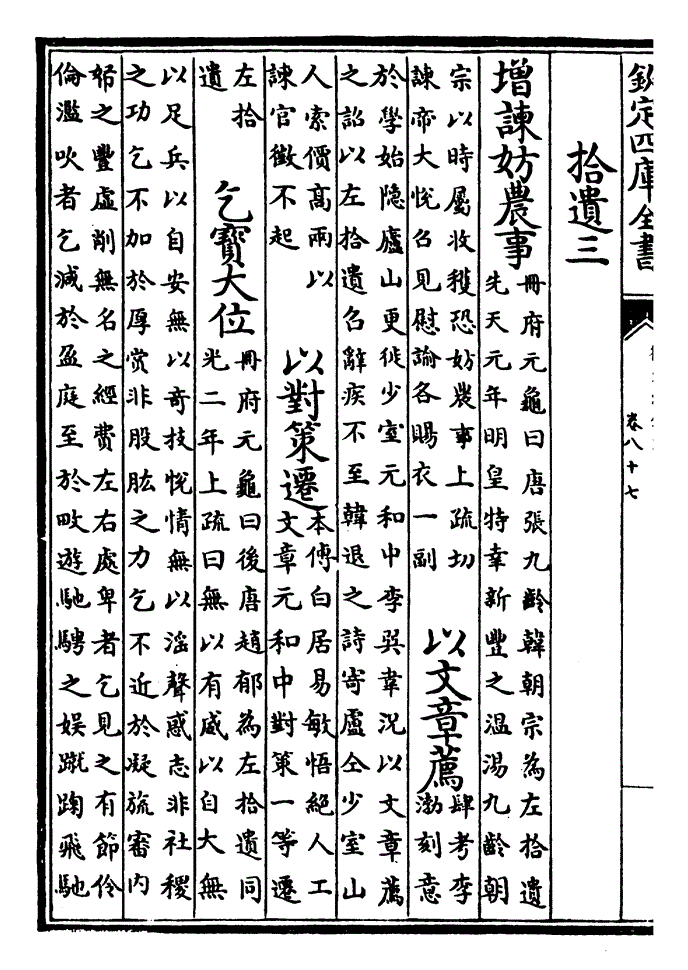 欽定四庫全書
卷八十七
拾遺三
增諫妨農事
冊府元龜曰唐張九齡韓朝宗為左拾遺
先天元年明皇特幸新豐之温湯九齡朝
宗以時屬收穫恐妨農事上疏切
諫帝大悅召見慰諭各賜衣一副
以文章薦
肆考李
渤刻意
於學始隐廬山更徙少室元和中李巽韋況以文章薦
之詔以左拾遺召辭疾不至韓退之詩寄盧仝少室山
人索價高兩以
諫官徵不起
以對策遷
本傳白居易敏悟絕人工
文章元和中對策一等遷
左拾
遺
乞寳大位
冊府元龜曰後唐趙郁為左拾遺同
光二年上疏曰無以有感以自大無
以足兵以自安無以奇技悅情無以滛聲惑志非社稷
之功乞不加於厚賞非股肱之力乞不近於凝旒審内
帑之豐虛削無名之經費左右處卑者乞見之有節伶
倫濫吹者乞減於盈庭至於畋遊馳騁之娯蹴踘飛馳